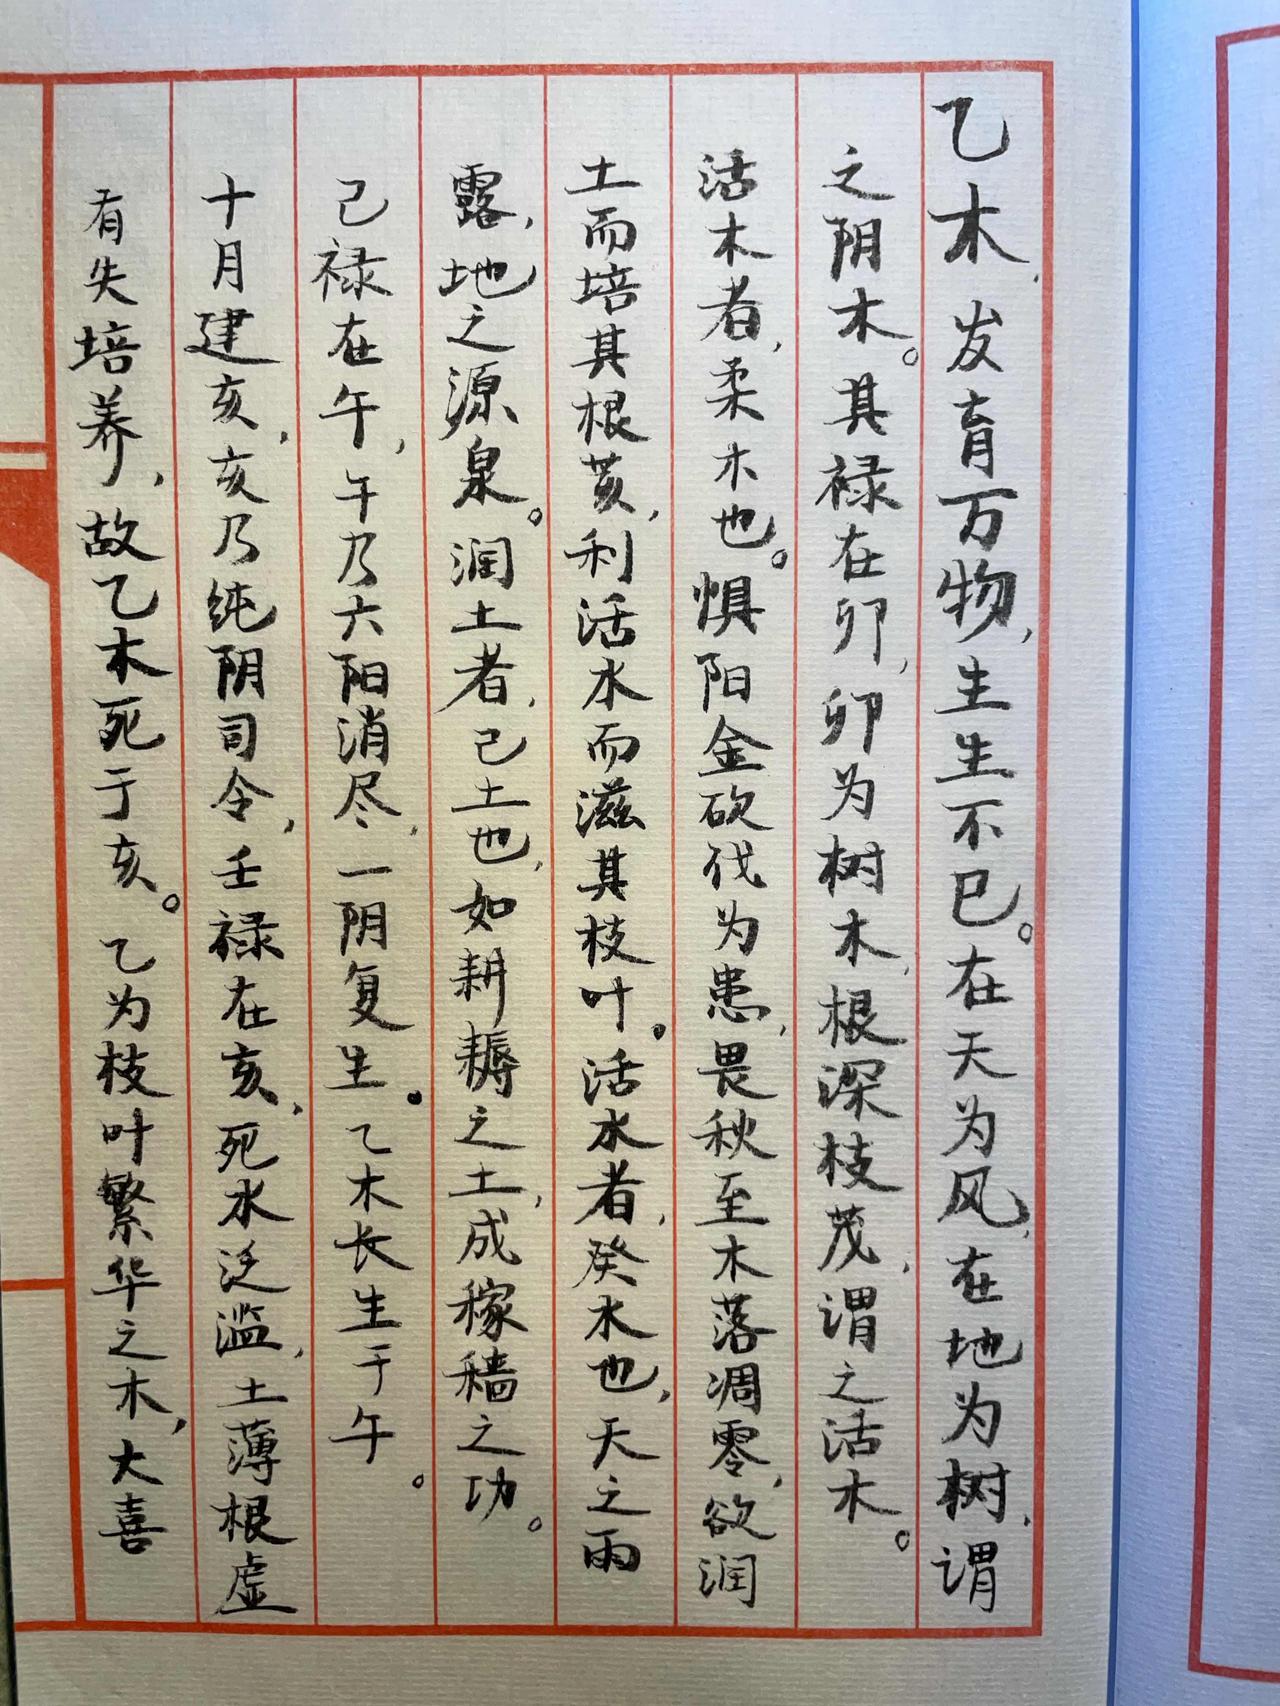 乙木，发育万物，生生不已。在天为风，在地为树，谓
之阴木。其禄在卯，卯为树木，根深枝茂，谓之活木。
活木者，柔木也。惧阳金砍伐为患，畏秋至木落凋零，欲润
土而培其根荄，利活水而滋其枝叶。活水者，癸水也，天之雨
露，地之源泉。润土者，己土也，如耕耨之土，成稼穑之功。
己禄在午，午乃六阳消尽，一阴复生。乙木长生于午。
十月建亥，亥乃纯阴司令，壬禄在亥，死水泛滥，土薄根虚
有失培养，故乙木死于亥。乙为枝叶繁华之木，大喜